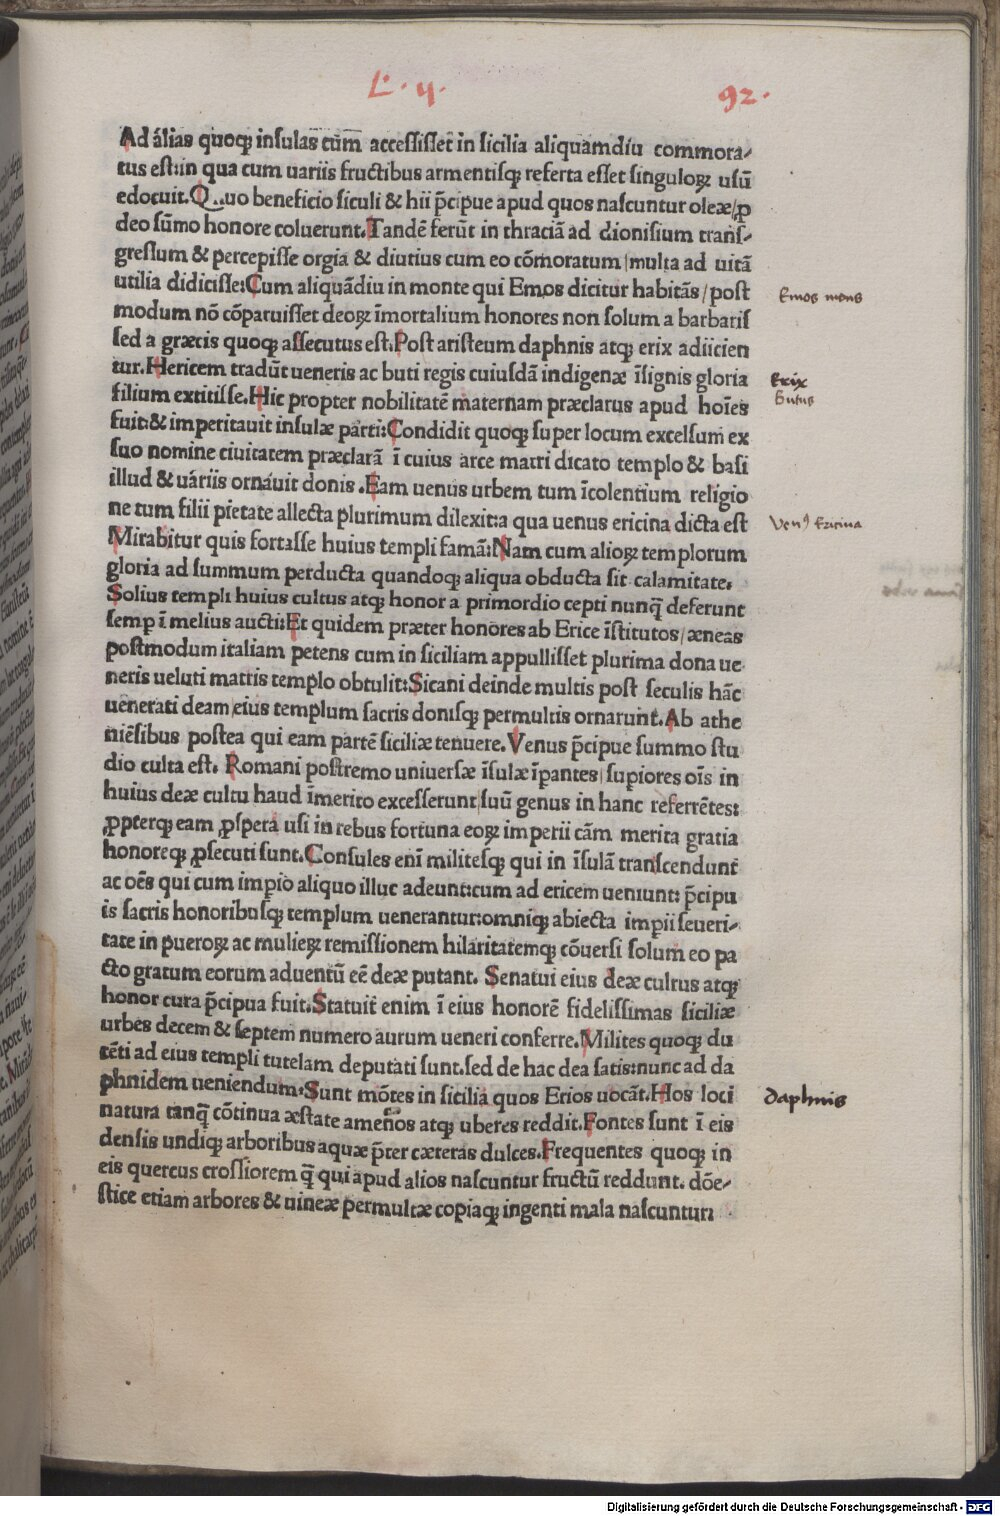 L. 4. 92.
Ad álias quoqꝫ insulas cum̄ accessisset in sicilia aliquamdiu commora⸗
tus est:in qua cum uariis fructibus armentisqꝫ referta esset singuloꝝ usū
edocuit. Quo beneficio siculi & hii p̄cipue apud quos nascuntur oleæ/ꝓ
deo sūmo honore coluerunt. Tandē ferūt in thraciā ad dionisium trans⸗
gressum & percepisse orgia & diutius cum eo cōmoratum/multa ad uitā
utilia didicisse: Cum aliquādiu in monte qui Emos dicitur habitās/post
Emos mons
modum nō cōparuisset deoꝝ īmortalium honores non solum a barbaris
sed a græcis quoqꝫ assecutus est. Post aristeum daphnis atqꝫ erix adiicien
tur. Hericem tradūt ueneris ac buti regis cuiusdā indigenæ īsignis gloria
Erix
filium extitisse. Hic propter nobilitatē maternam præclarus apud hoīes
Butus
fuit:& imperitauit insulæ parti: Condidit quoqꝫ super locum excelsum ex
suo nomine ciuitatem præclarā ī cuius arce matri dicato templo & basi
illud & uáriis ornáuit donis. Eam uenus urbem tum īcolentium religio
ne tum filii pietate allecta plurimum dilexit:a qua uenus ericina dicta est
Venꝰ Ericina
Mirabitur quis fortasse huius templi famā: Nam cum alioꝝ templorum
gloria ad summum perducta quandoqꝫ aliqua obducta sit calamitate.
Solius templi huius cultus atqꝫ honor a primordio cepti nunq̄ deferunt
semp ī melius aucti: Et quidem præter honores ab Erice īstitutos/æneas
postmodum italiam petens cum in siciliam appullisset plurima dona ue
neris ueluti matris templo obtulit: Sicani deinde multis post seculis hāc
uenerati deam/eius templum sacris donisqꝫ permultis ornarunt. Ab athe
niēsibus postea qui eam partē siciliæ tenuere. Venus p̄cipue summo stu
dio culta est. Romani postremo uniuersæ īsulæ īpantes/supiores oīs in
huius deæ cultu haud īmerito excesserunt/suū genus in hanc referrētes:
ꝓpterqꝫ eam ꝓspera usi in rebus fortuna eoꝝ imperii cām merita gratia
honoreqꝫ ꝓsecuti sunt. Consules enī militesqꝫ qui in īsulā transcendunt
ac oēs qui cum impio aliquo illuc adeunt:cum ad ericem ueniunt: p̄cipu
is sacris honoribusqꝫ templum uenerantur:omniqꝫ abiecta impii seueri⸗
tate in pueroꝝ ac mulieꝝ remissionem hilaritatemqꝫ cōuersi solum eo pa
cto gratum eorum aduentū eē deæ putant. Senatui eius deæ cultus atqꝫ
honor cura p̄cipua fuit. Statuit enim ī eius honorē fidelissimas siciliæ
urbes decem & septem numero aurum ueneri conferre. Milites quoqꝫ du
cēti ad eius templi tutelam deputati sunt. sed de hac dea satis:nunc ad da
phnidem ueniendum: Sunt mōtes in sicilia quos Erios uocāt. Hos loci
daphnis
natura tanq̄ cōtinua æstate amenos atqꝫ uberes reddit. Fontes sunt ī eis
densis undiqꝫ arboribus aquæ p̄ter cæteras dulces. Frequentes quoqꝫ in
eis quercus crossiorem q̄ qui apud alios nascuntur fructū reddunt. dōe⸗
stice etiam arbores & uineæ permultæ copiaqꝫ ingenti mala nascuntur:
Digitalisierung gefördert durch die Deutsche Forschungsgemeinschaft - DFG